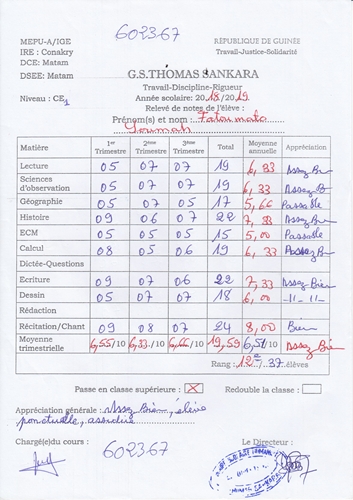 602367
MEPU-A/IGE
RÉPUBLIQUE DE GUINÉE
IRE : Conakry
Travail-Justice-Solidarité
DCE: Matam
DSEE: Matam
G.S.THOMAS SANKARA
Travail-Discipline-Rigueur
Niveau : CE1
Année scolaire: 2018/2019
Relevé de notes de l'élève :
Prénom(s) et nom : Fatoumata
Youmah
Matière 1er Trimestre 2ème Trimestre 3ème Trimestre Total Moyenne annuelle Appréciation
Lecture 05 07 07 19 6,33 Assez Bien
Sciences d'observation 05 07 07 19 6,33 Assez B
Géographie 05 07 05 17 5,66 Passable
Histoire 09 06 07 22 7,33 Assez Bien
ECM 05 05 05 15 5,00 Passable
Calcul 08 05 06 19 6,33 Assez Bien
Dictée-Questions
Ecriture 09 07 06 22 7,33 Assez Bien
Dessin 05 07 07 18 6,00 -11-11-
Rédaction
Récitation/Chant 09 08 07 24 8,00 Bien
Moyenne trimestrielle 6,55/10 6,33/10 6,66/10 19,59 6,51/10 Assez Bien
Rang : 12e / 37 élèves
Passe en classe supérieure : X Redouble la classe :
Appréciation générale : Assez Bien, élève
ponctuelle, assidue
Chargé(e)du cours :
Le Directeur :
602367